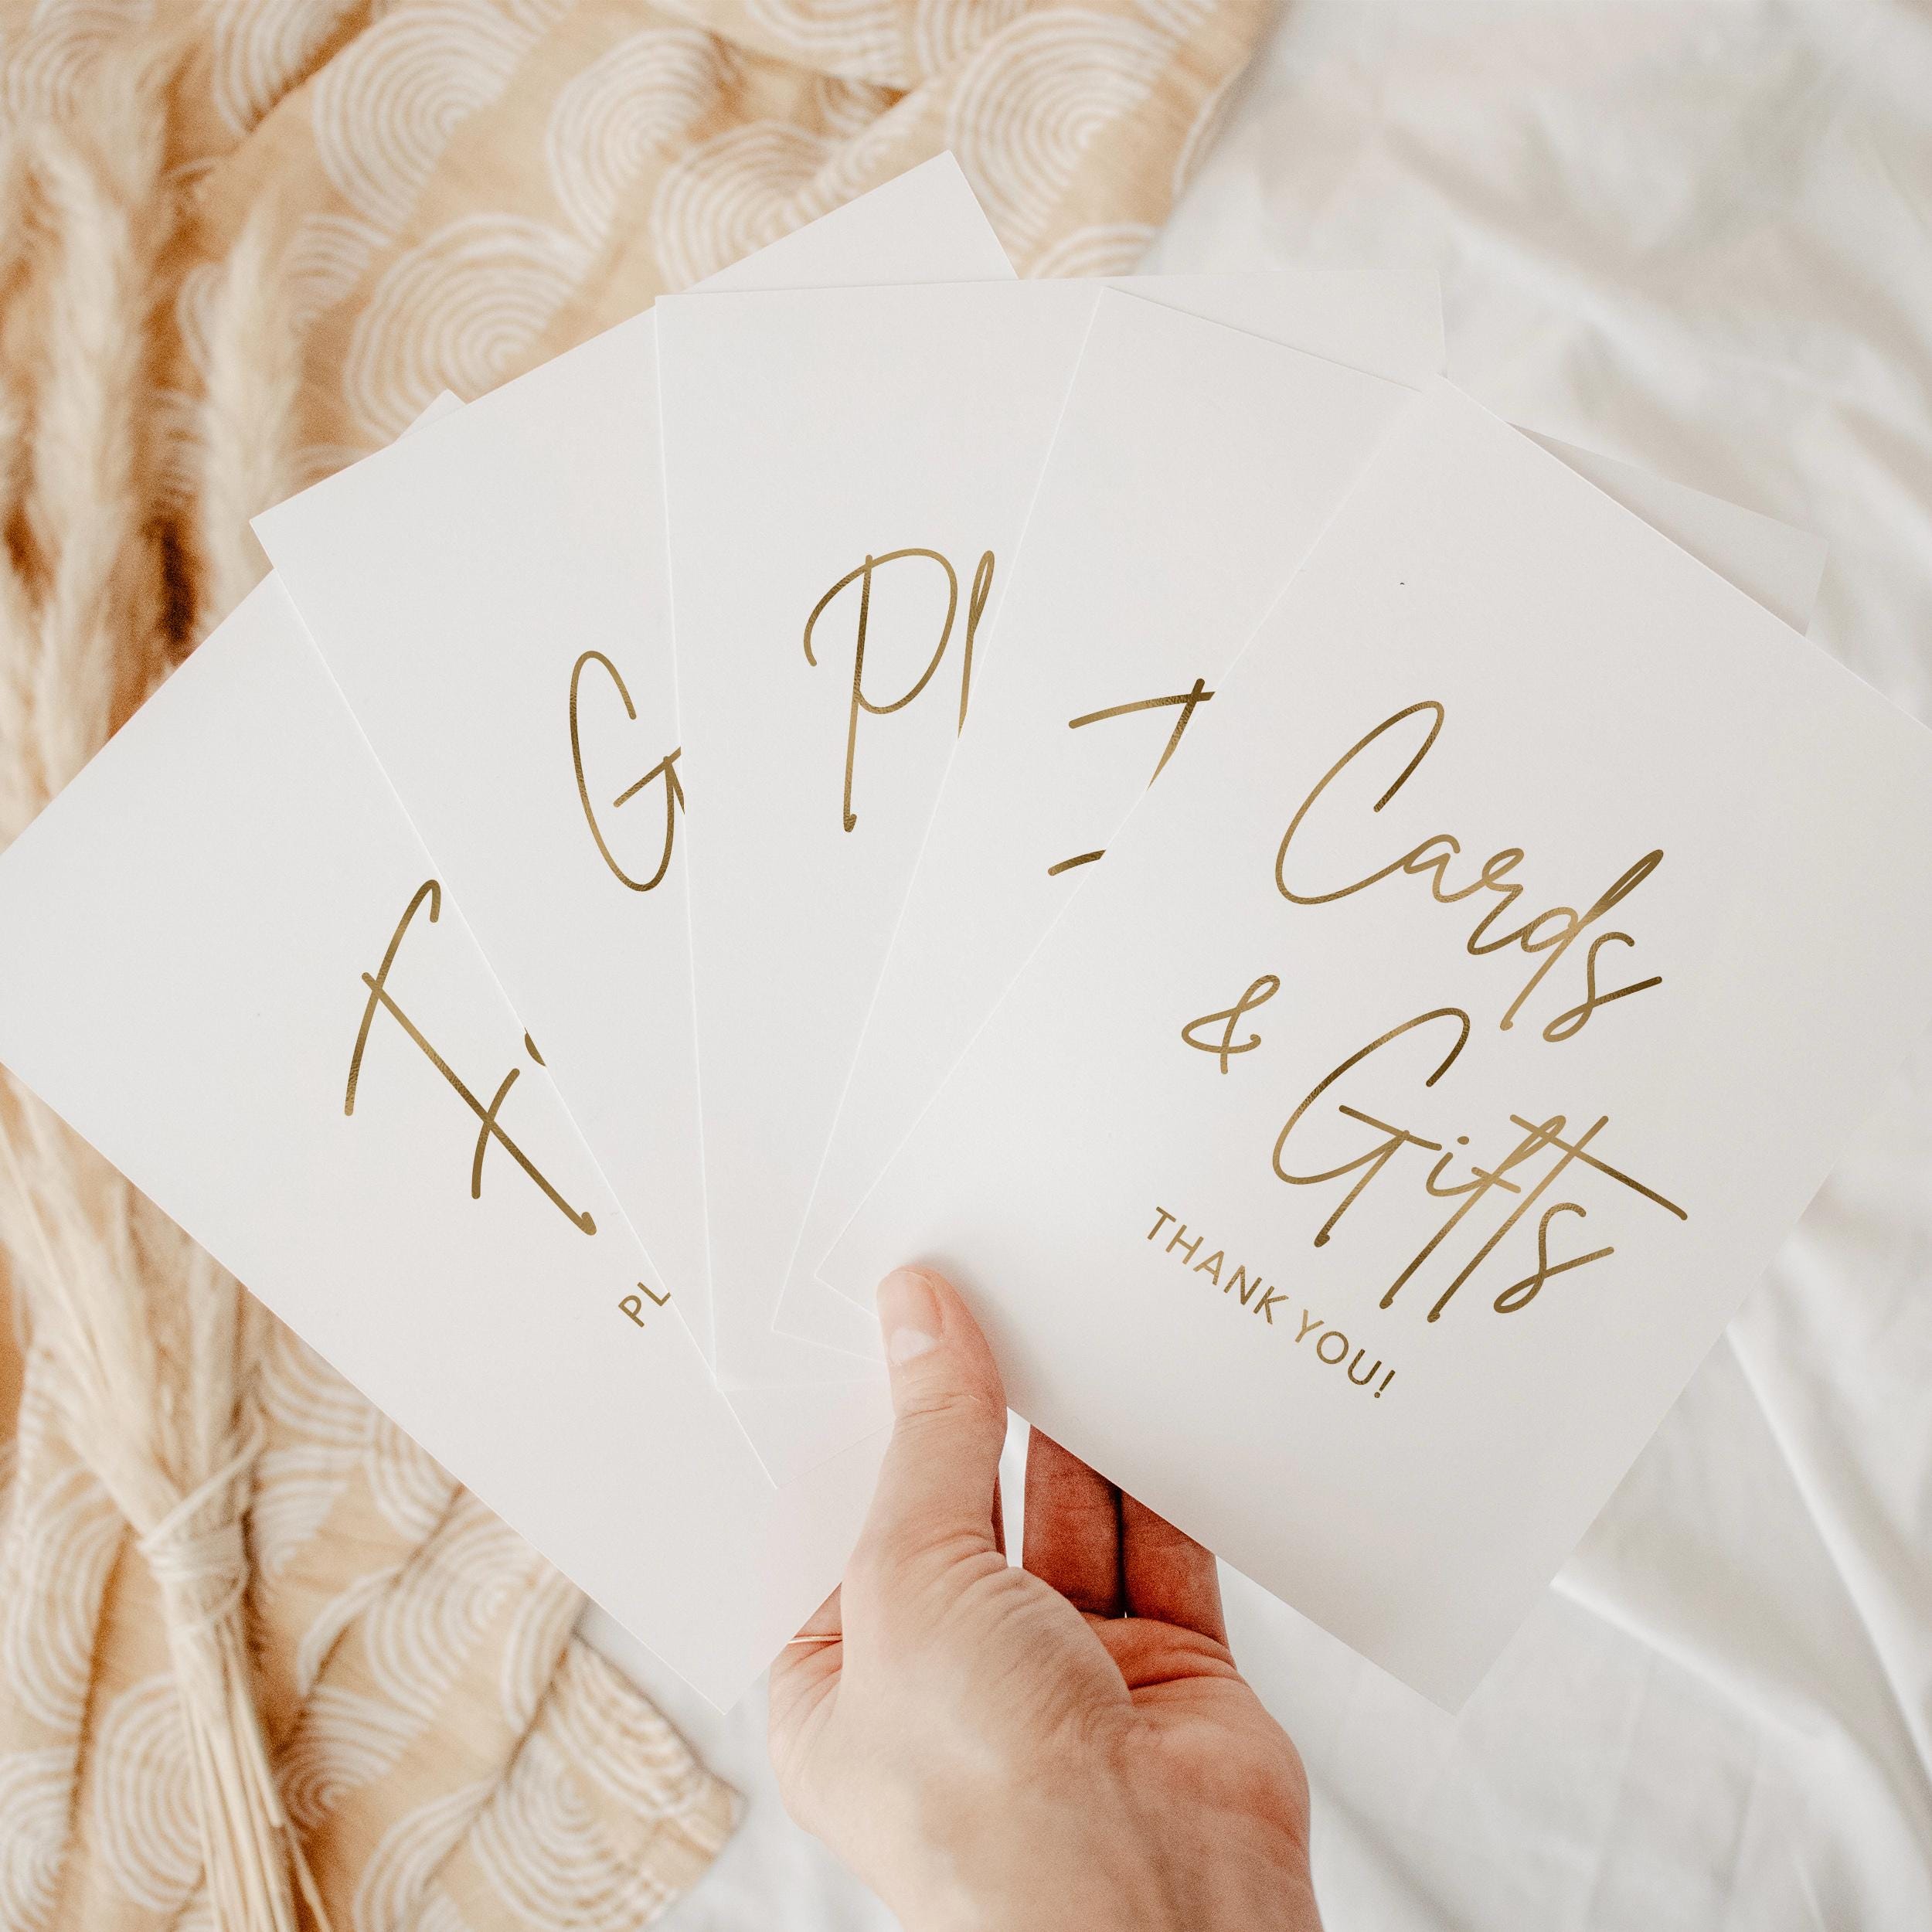 Pl
Cards
& Gifts
THANK YOU!
PL